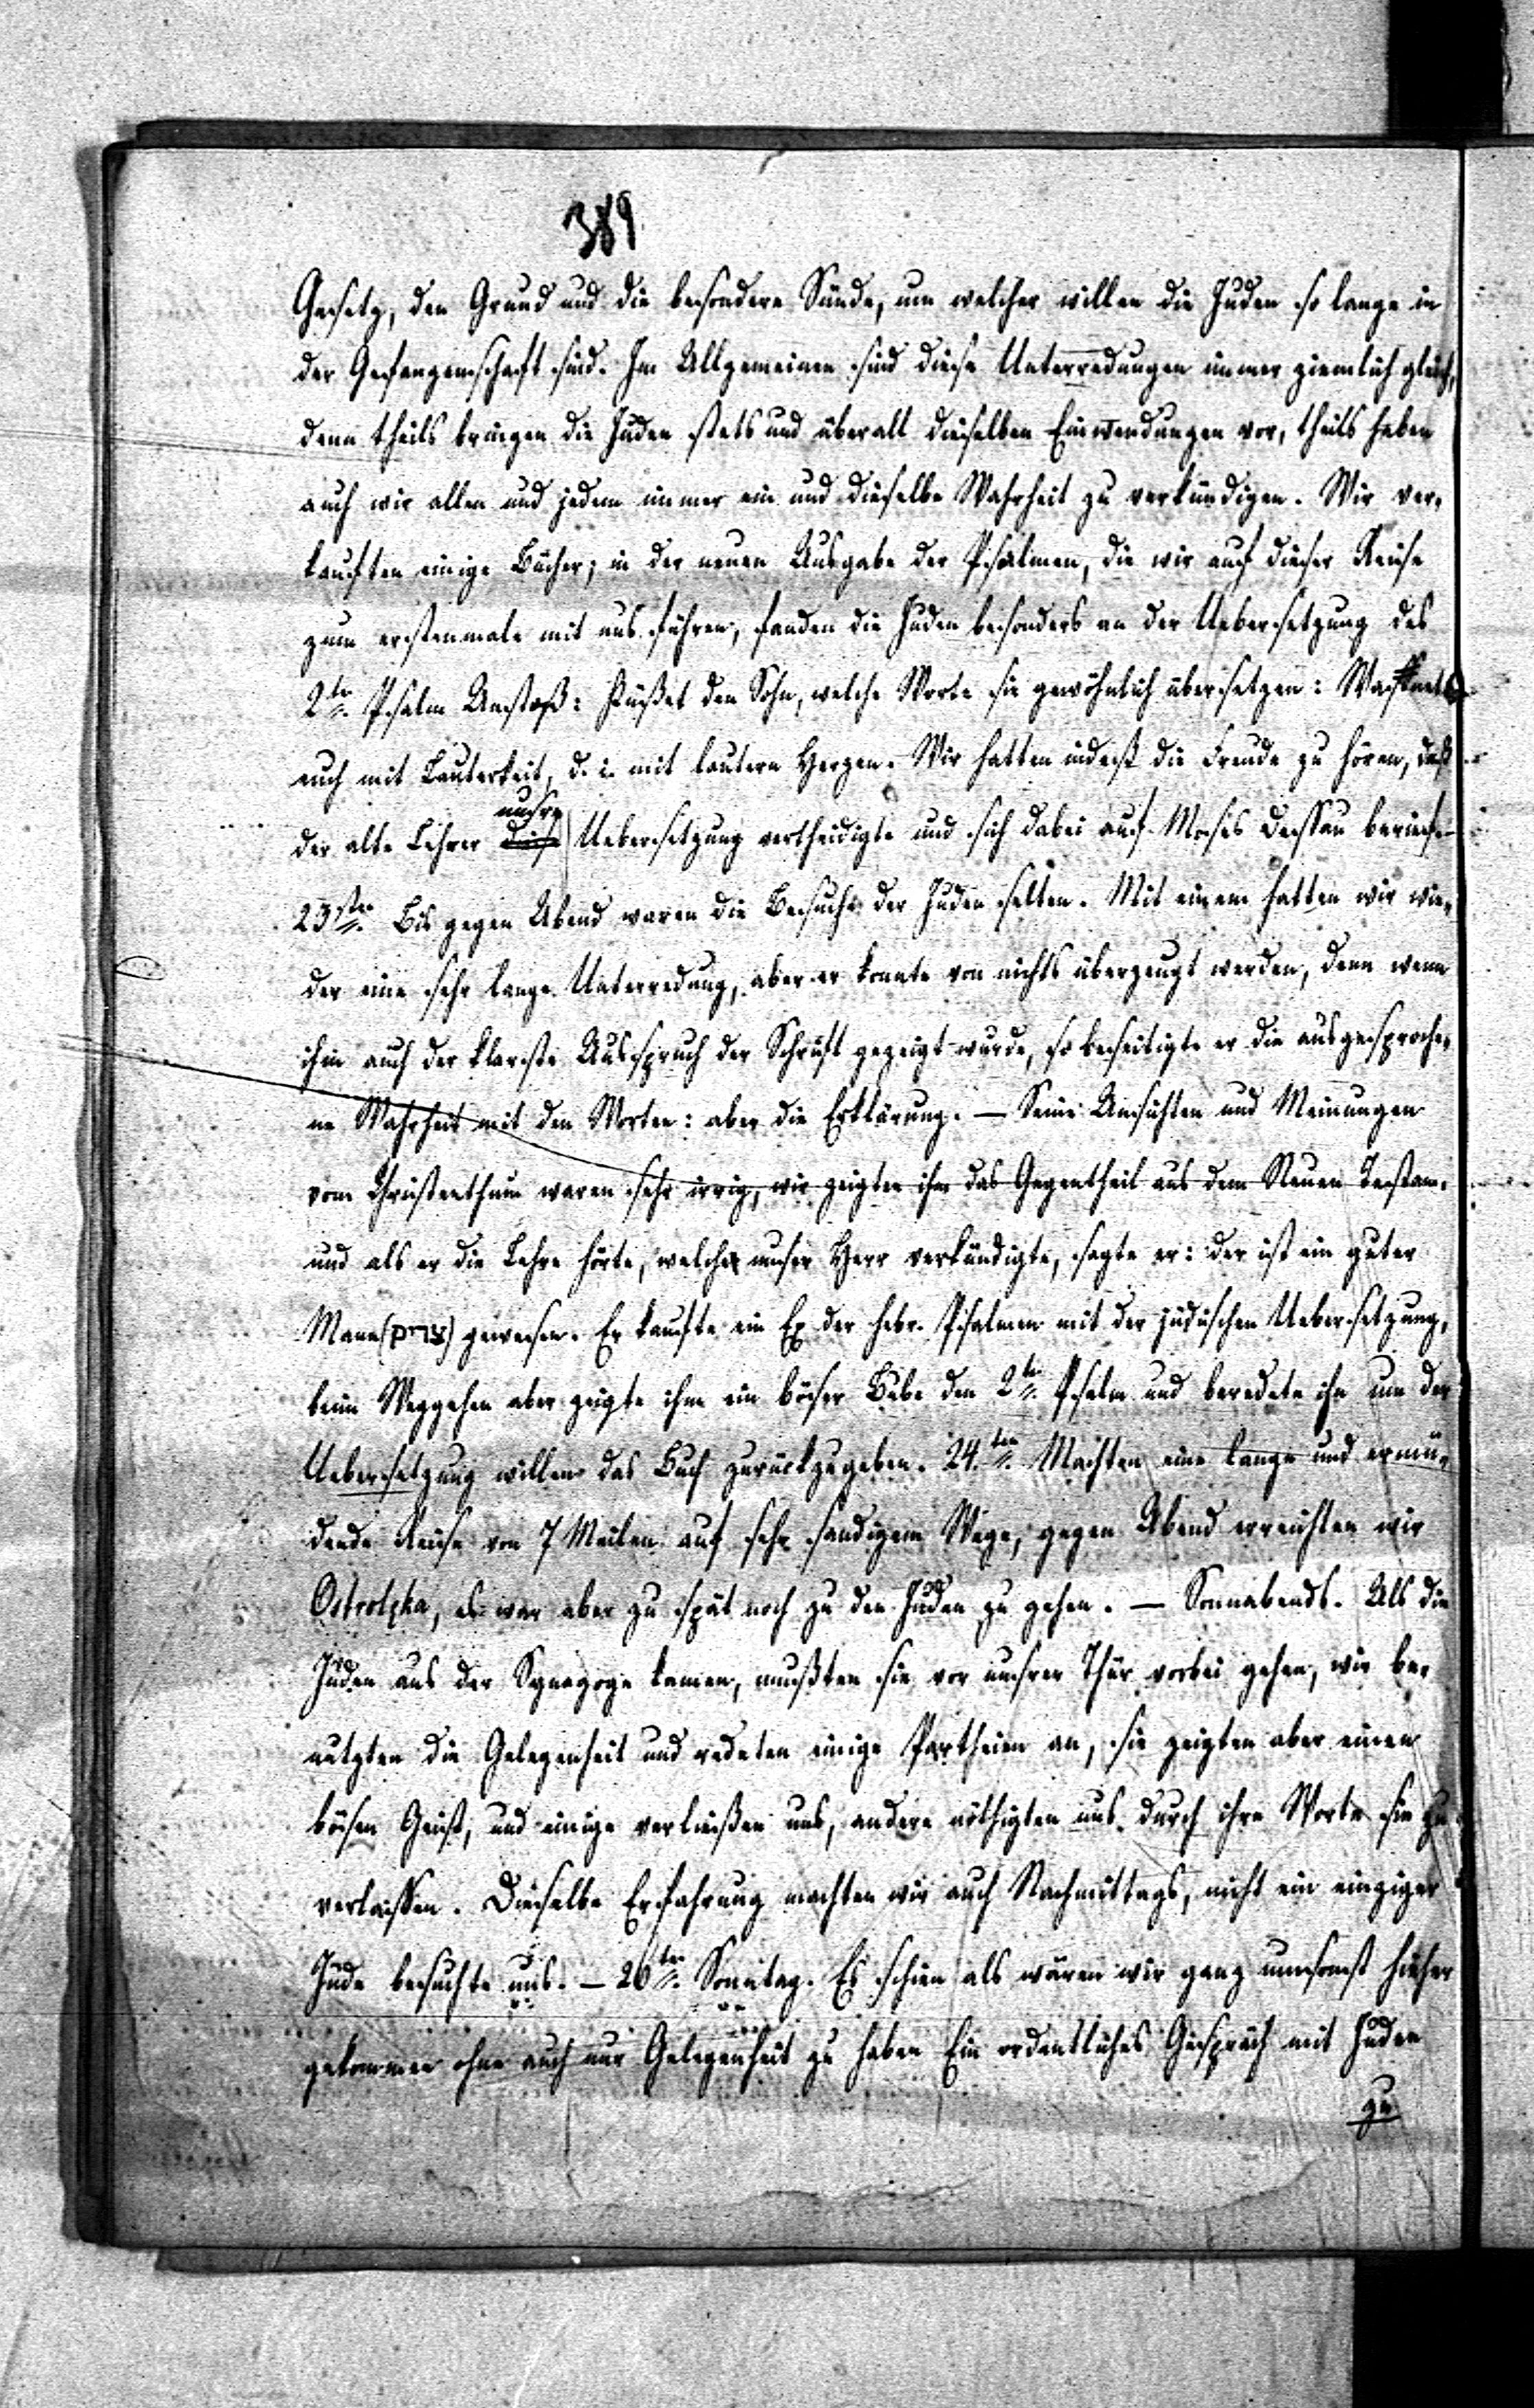 389
Gesetz, den Grund und die besondere Sünde, um welcher willen die Juden so lange in
der Gefangenschaft sind. Im Allgemeinen sind diese Unterredungen immer ziemlich gleich,
denn theils bringen die Juden stets und überall dieselben Einwendungen vor, theils haben
auch wir allen und jedem immer ein und dieselbe Wahrheit zu verkündigen. Wir ver-
kauften einige Bücher; in der neuen Ausgabe der Psalmen, die wir auf dieser Reise
zum erstenmale mit uns führen, fanden die Juden besonders an der Uebersetzung des
2ten Psalm Anstoß: Küßet den Sohn, welche Worte sie gewöhnlich übersetzen:
euch mit Lauterkeit, d. i. mit lautern Herzen. Wir hatten indeß die Freude zu hören, daß
unsre
der alte Lehrer diese Uebersetzung vertheidigte und sich dabei auf Moses Dessau berief.
23sten Bis gegen Abend waren die Besuche der Juden selten. Mit einem hatten wir wie-
der eine sehr lange Unterredung, aber er konnte von nichts überzeugt werden, denn wenn
ihm auch der klarste Ausspruch der Schrift gezeigt wurde, so beseitigte er die ausgesproche-
ne Wahrheit mit den Worten: aber die Erklärung. — Seine Ansichten und Meinungen
vom Christenthum waren sehr irrig, wir zeigten ihm das Gegentheil aus dem Neuen Testam.
und als er die Lehre hörte, welche unser Herr verkündigte, sagte er: der ist ein guter
Mann (צדיק) gewesen. Er kaufte ein Ex der hebr. Psalmen mit der jüdischen Uebersetzung,
beim Weggehen aber zeigte ihm ein böser Bube den 2ten Psalm und beredete ihn um der
Uebersetzung willen das Buch zurückzugeben. 24.ten Machten eine lange und ermü-
dende Reise von 7 Meilen auf sehr sandigem Wege, gegen Abend erreichten wir
Ostrolęka, es war aber zu spät noch zu den Juden zu gehen. — Sonnabends. Als die
Juden aus der Synagoge kamen, mußten sie vor unsrer Thür vorbei gehen, wir be-
nutzten die Gelegenheit und redeten einige Partheien an, sie zeigten aber einen
bösen Geist, und einige verließen uns, andere nöthigten uns durch ihre Worte sie zu
verlassen. Dieselbe Erfahrung machten wir auch Nachmittags, nicht ein einziger
Jude besuchte uns. — 26ten Sonntag. Es schien als wären wir ganz umsonst hieher
gekommen ohne auch nur Gelegenheit zu haben Ein ordentliches Gespräch mit Juden
zu